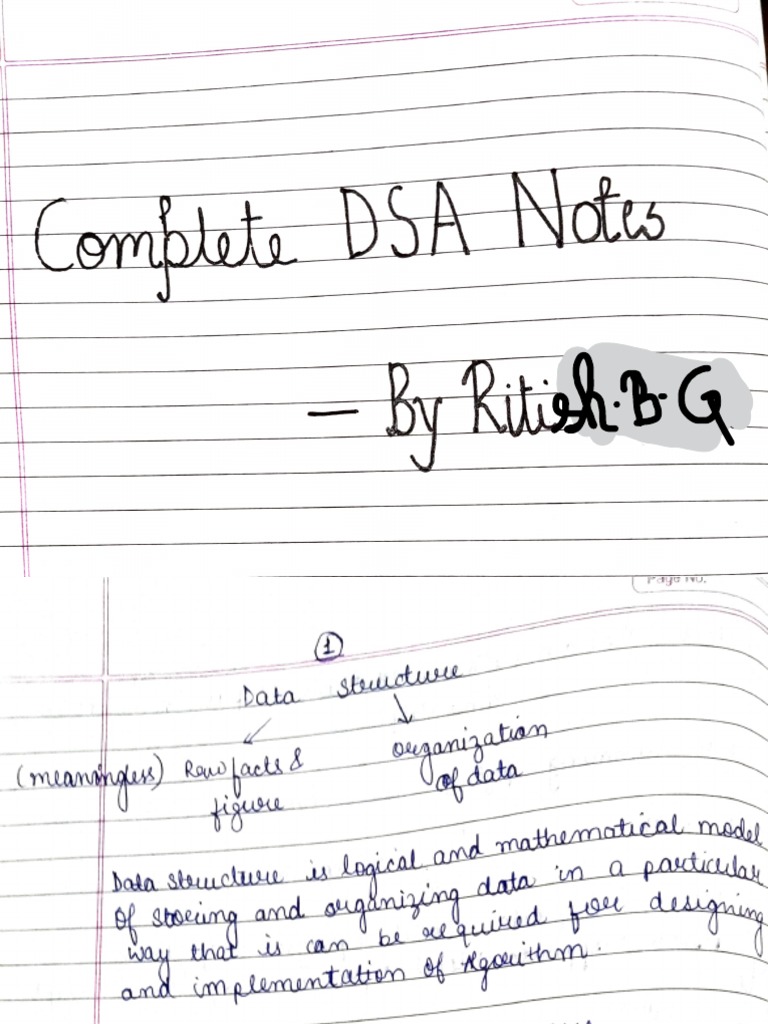 Complete DSA Notes
– By Ritish.B.G
Page No.
1
Data structure
(meaningless) Raw facts & organization
figure of data
Data structure is logical and mathematical model
of storing and organizing data in a particular
way that is can be required for designing
and implementation of Algorithm.